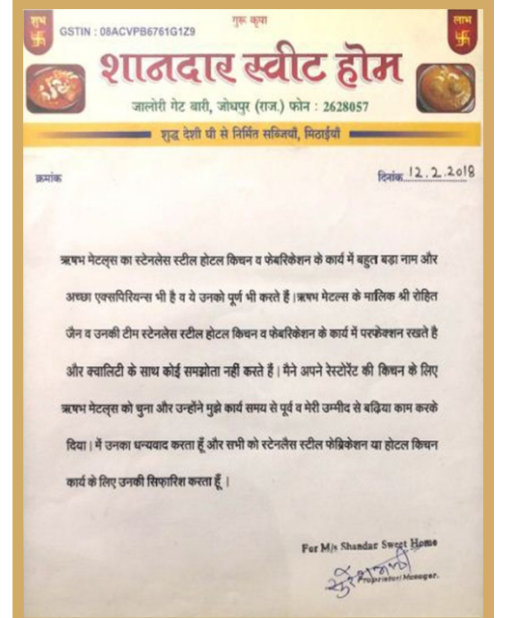 शुभ
GSTIN : 08ACVPB6761G1Z9
गुरू कृपा
लाभ
शानदार स्वीट होम
जालोरी गेट बारी, जोधपुर (राज.) फोन : 2628057
शुद्ध देशी घी से निर्मित सब्जियाँ, मिठाईयाँ
क्रमांक
दिनांक 12.2.2018
ऋषभ मेटल्स का स्टेनलेस स्टील होटल किचन व फेबरिकेशन के कार्य में बहुत बड़ा नाम और
अच्छा एक्सपिरियन्स भी है व ये उनको पूर्ण भी करते हैं।ऋषभ मेटल्स के मालिक श्री रोहित
जैन व उनकी टीम स्टेनलेस स्टील होटल किचन व फेबरिकेशन के कार्य में परफेक्शन रखते है
और क्वालिटी के साथ कोई समझोता नहीं करते हैं। मैने अपने रेस्टोरेंट की किचन के लिए
ऋषभ मेटल्स को चुना और उन्होंने मुझे कार्य समय से पूर्व व मेरी उम्मीद से बढ़िया काम करके
दिया। में उनका धन्यवाद करता हूँ और सभी को स्टेनलैस स्टील फेब्रिकेशन या होटल किचन
कार्य के लिए उनकी सिफारिश करता हूँ ।
For M/s Shandar Sweet Home
Proprietor/Manager.